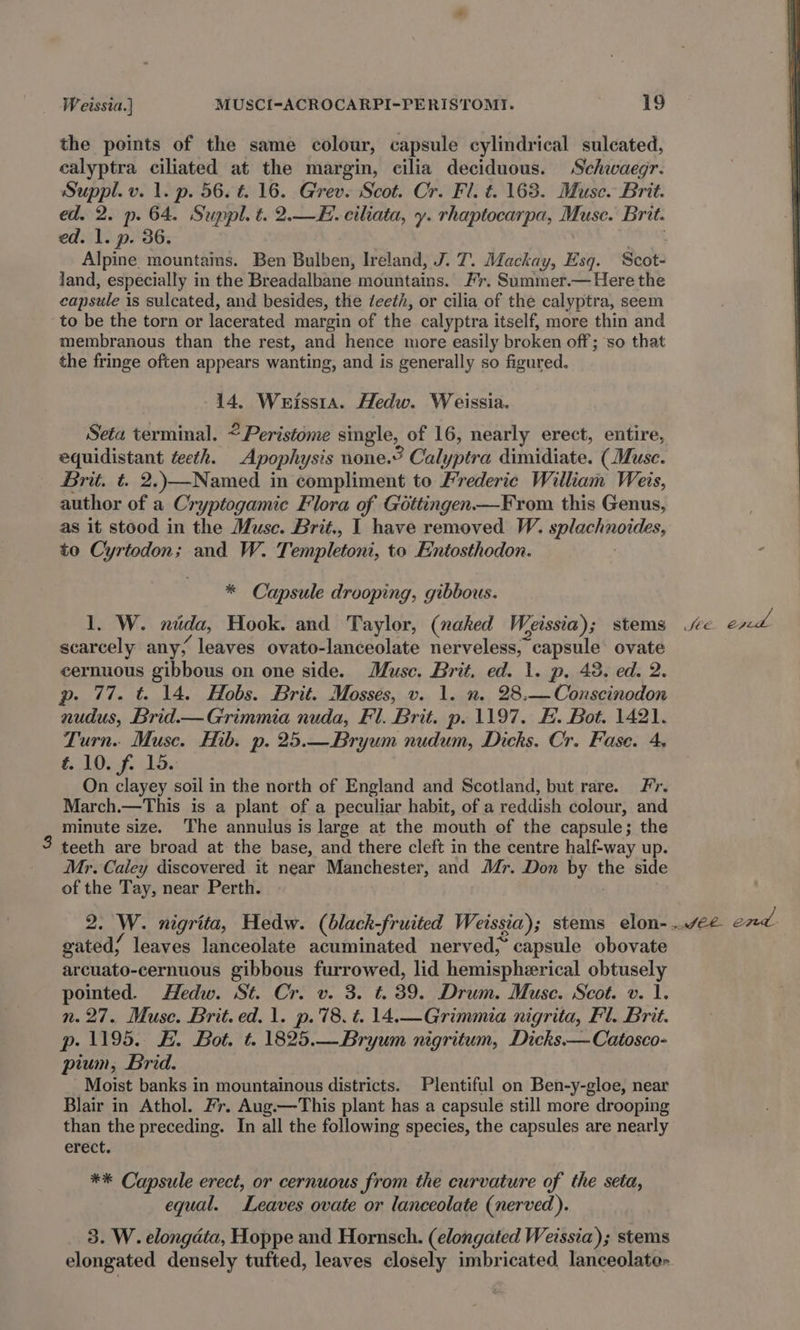 Weissia.] MUSCI-ACROCARPI-PERISTOMI. 19
the points of the same colour, capsule cylindrical sulcated,
calyptra ciliated at the margin, cilia deciduous. Schwaegr.
Suppl. v. 1. p. 56. t. 16. Grev. Scot. Cr. Fl. t. 163. Musc. Brit.
ed. 2. p. 64. Suppl. t. 2.—E. ciliata, γ. rhaptocarpa, Musc. Brit.
ed. 1. p. 36.
Alpine mountains. Ben Bulben, Ireland, J. T. Mackay, Esq. Scot-
land, especially in the Breadalbane mountains. Fr. Summer.—Here the
capsule is sulcated, and besides, the teeth, or cilia of the calyptra, seem
to be the torn or lacerated margin of the calyptra itself, more thin and
membranous than the rest, and hence more easily broken off; so that
the fringe often appears wanting, and is generally so figured.
14. Weíssia. Hedw. Weissia.
Seta terminal. 2 Peristome single, of 16, nearly erect, entire,
equidistant teeth. Apophysis none.3 Calyptra dimidiate. (Musc.
Brit. t. 2.)—Named in compliment to Frederic William Weis,
author of a Cryptogamic Flora of Göttingen.—From this Genus,
as it stood in the Musc. Brit., I have removed W. splachnoides,
to Cyrtodon; and W. Templetoni, to Entosthodon.
* Capsule drooping, gibbous.
1. W. núda, Hook. and Taylor, (naked Weissia); stems see end
scarcely any, leaves ovato-lanceolate nerveless, capsule ovate
cernuous gibbous on one side. Musc. Brit. ed. 1. p. 43. ed. 2.
p. 77. t. 14. Hobs. Brit. Mosses, v. 1. n. 28.—Conscinodon
nudus, Brid.—Grimmia nuda, Fl. Brit. p. 1197. E. Bot. 1421.
Turn. Musc. Hib. p. 25.—Bryum nudum, Dicks. Cr. Fasc. 4.
t. 10. f. 15.
On clayey soil in the north of England and Scotland, but rare. Fr.
March.—This is a plant of a peculiar habit, of a reddish colour, and
minute size. The annulus is large at the mouth of the capsule; the
3 teeth are broad at the base, and there cleft in the centre half-way up.
Mr. Caley discovered it near Manchester, and Mr. Don by the side
of the Tay, near Perth.
2. W. nigríta, Hedw. (black-fruited Weissia); stems elon- see end
gated, leaves lanceolate acuminated nerved, capsule obovate
arcuato-cernuous gibbous furrowed, lid hemisphærical obtusely
pointed. Hedw. St. Cr. v. 3. t. 39. Drum. Musc. Scot. v. 1.
n. 27. Musc. Brit. ed. 1. p. 78. t. 14.—Grimmia nigrita, Fl. Brit.
p. 1195. E. Bot. t. 1825.—Bryum nigritum, Dicks.—Catosco-
pium, Brid.
Moist banks in mountainous districts. Plentiful on Ben-y-gloe, near
Blair in Athol. Fr. Aug.—This plant has a capsule still more drooping
than the preceding. In all the following species, the capsules are nearly
erect.
** Capsule erect, or cernuous from the curvature of the seta,
equal. Leaves ovate or lanceolate (nerved).
3. W. elongáta, Hoppe and Hornsch. (elongated Weissia); stems
elongated densely tufted, leaves closely imbricated lanceolato-